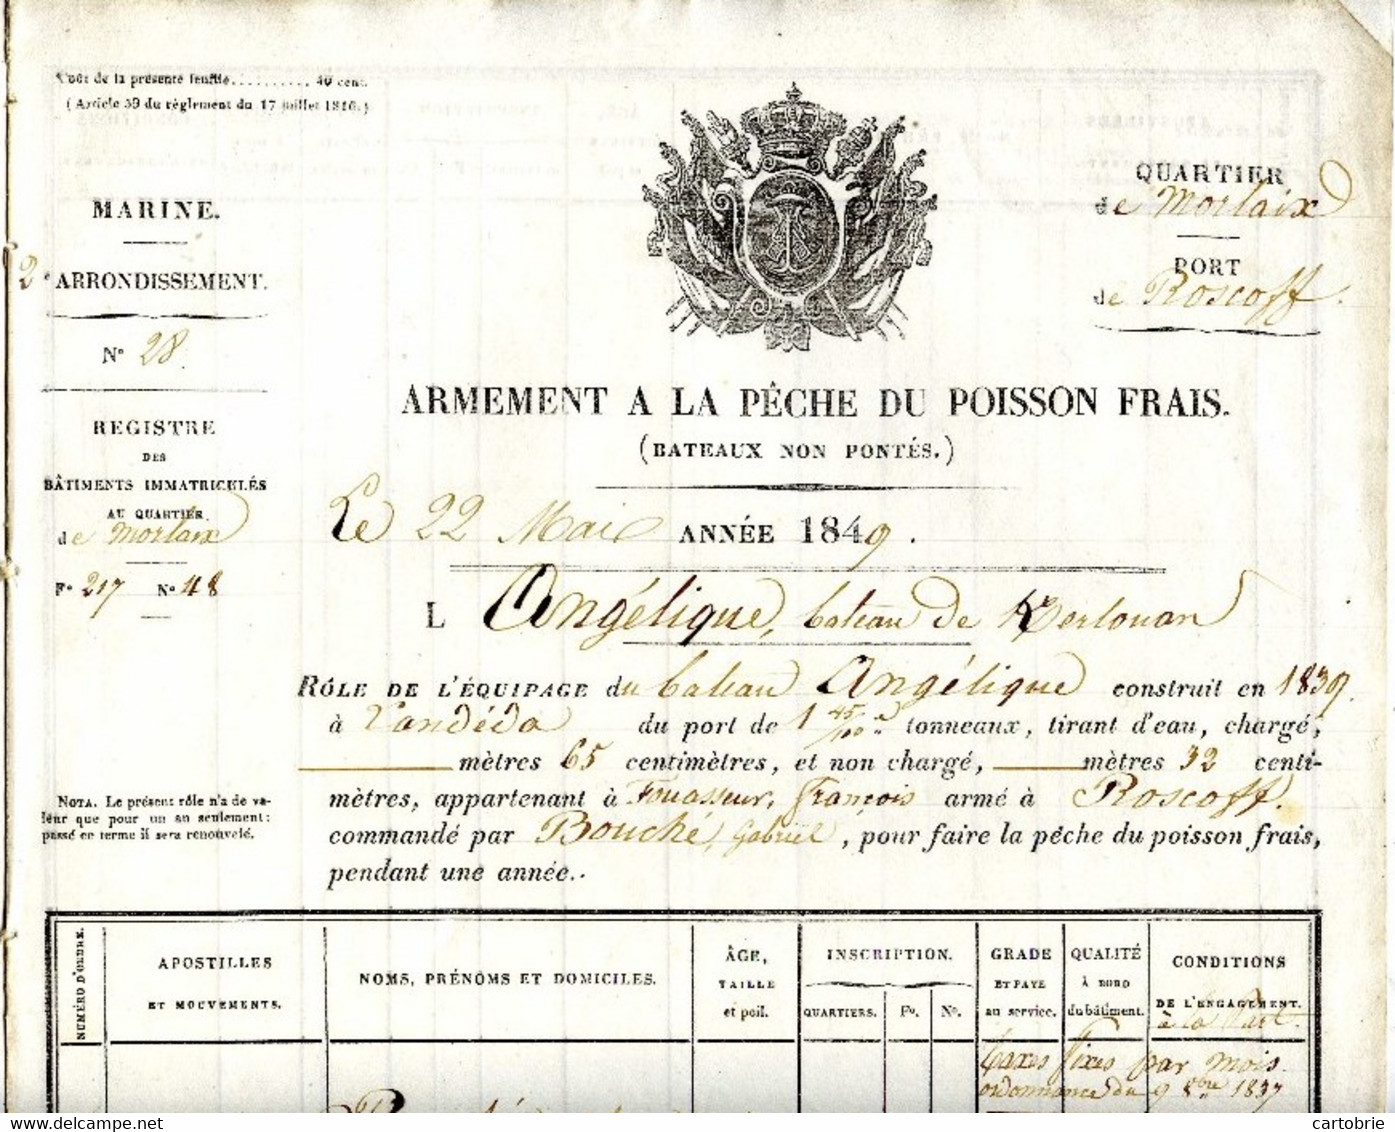 Coût de la présente feuille.......... 40 cent.
(Article 39 du règlement du 17 juillet 1816.)
MARINE.
2e ARRONDISSEMENT.
N° 28.
REGISTRE
DES
BÂTIMENTS IMMATRICULÉS
AU QUARTIER
de Morlaix
F° 217 N° 48
NOTA. Le présent rôle n'a de va-
leur que pour un an seulement:
passé ce terme il sera renouvelé.
QUARTIER
de Morlaix
PORT
de Roscoff.
ARMEMENT A LA PÊCHE DU POISSON FRAIS.
(BATEAUX NON PONTÉS.)
Le 22 Mai ANNÉE 1849.
L Angélique, bateau de Kerlouan
RÔLE DE L'ÉQUIPAGE du bateau Angélique construit en 1839
à Landéda du port de 1 45/100 e tonneaux, tirant d'eau, chargé,
mètres 65 centimètres, et non chargé, mètres 32 centi-
mètres, appartenant à Fouasseur, françois armé à Roscoff.
commandé par Bouché, Gabriel, pour faire la pêche du poisson frais,
pendant une année.
NUMÉRO D'ORDRE.
APOSTILLES
ET MOUVEMENTS.
NOMS, PRÉNOMS ET DOMICILES.
ÂGE,
TAILLE
et poil.
INSCRIPTION.
QUARTIERS. F°. N°.
GRADE
ET PAYE
au service.
QUALITÉ
À BORD
du bâtiment.
CONDITIONS
DE L'ENGAGEMENT.
à la Part.
taxes fixes par mois
ordonnance du 9 8bre 1837
cartobrie